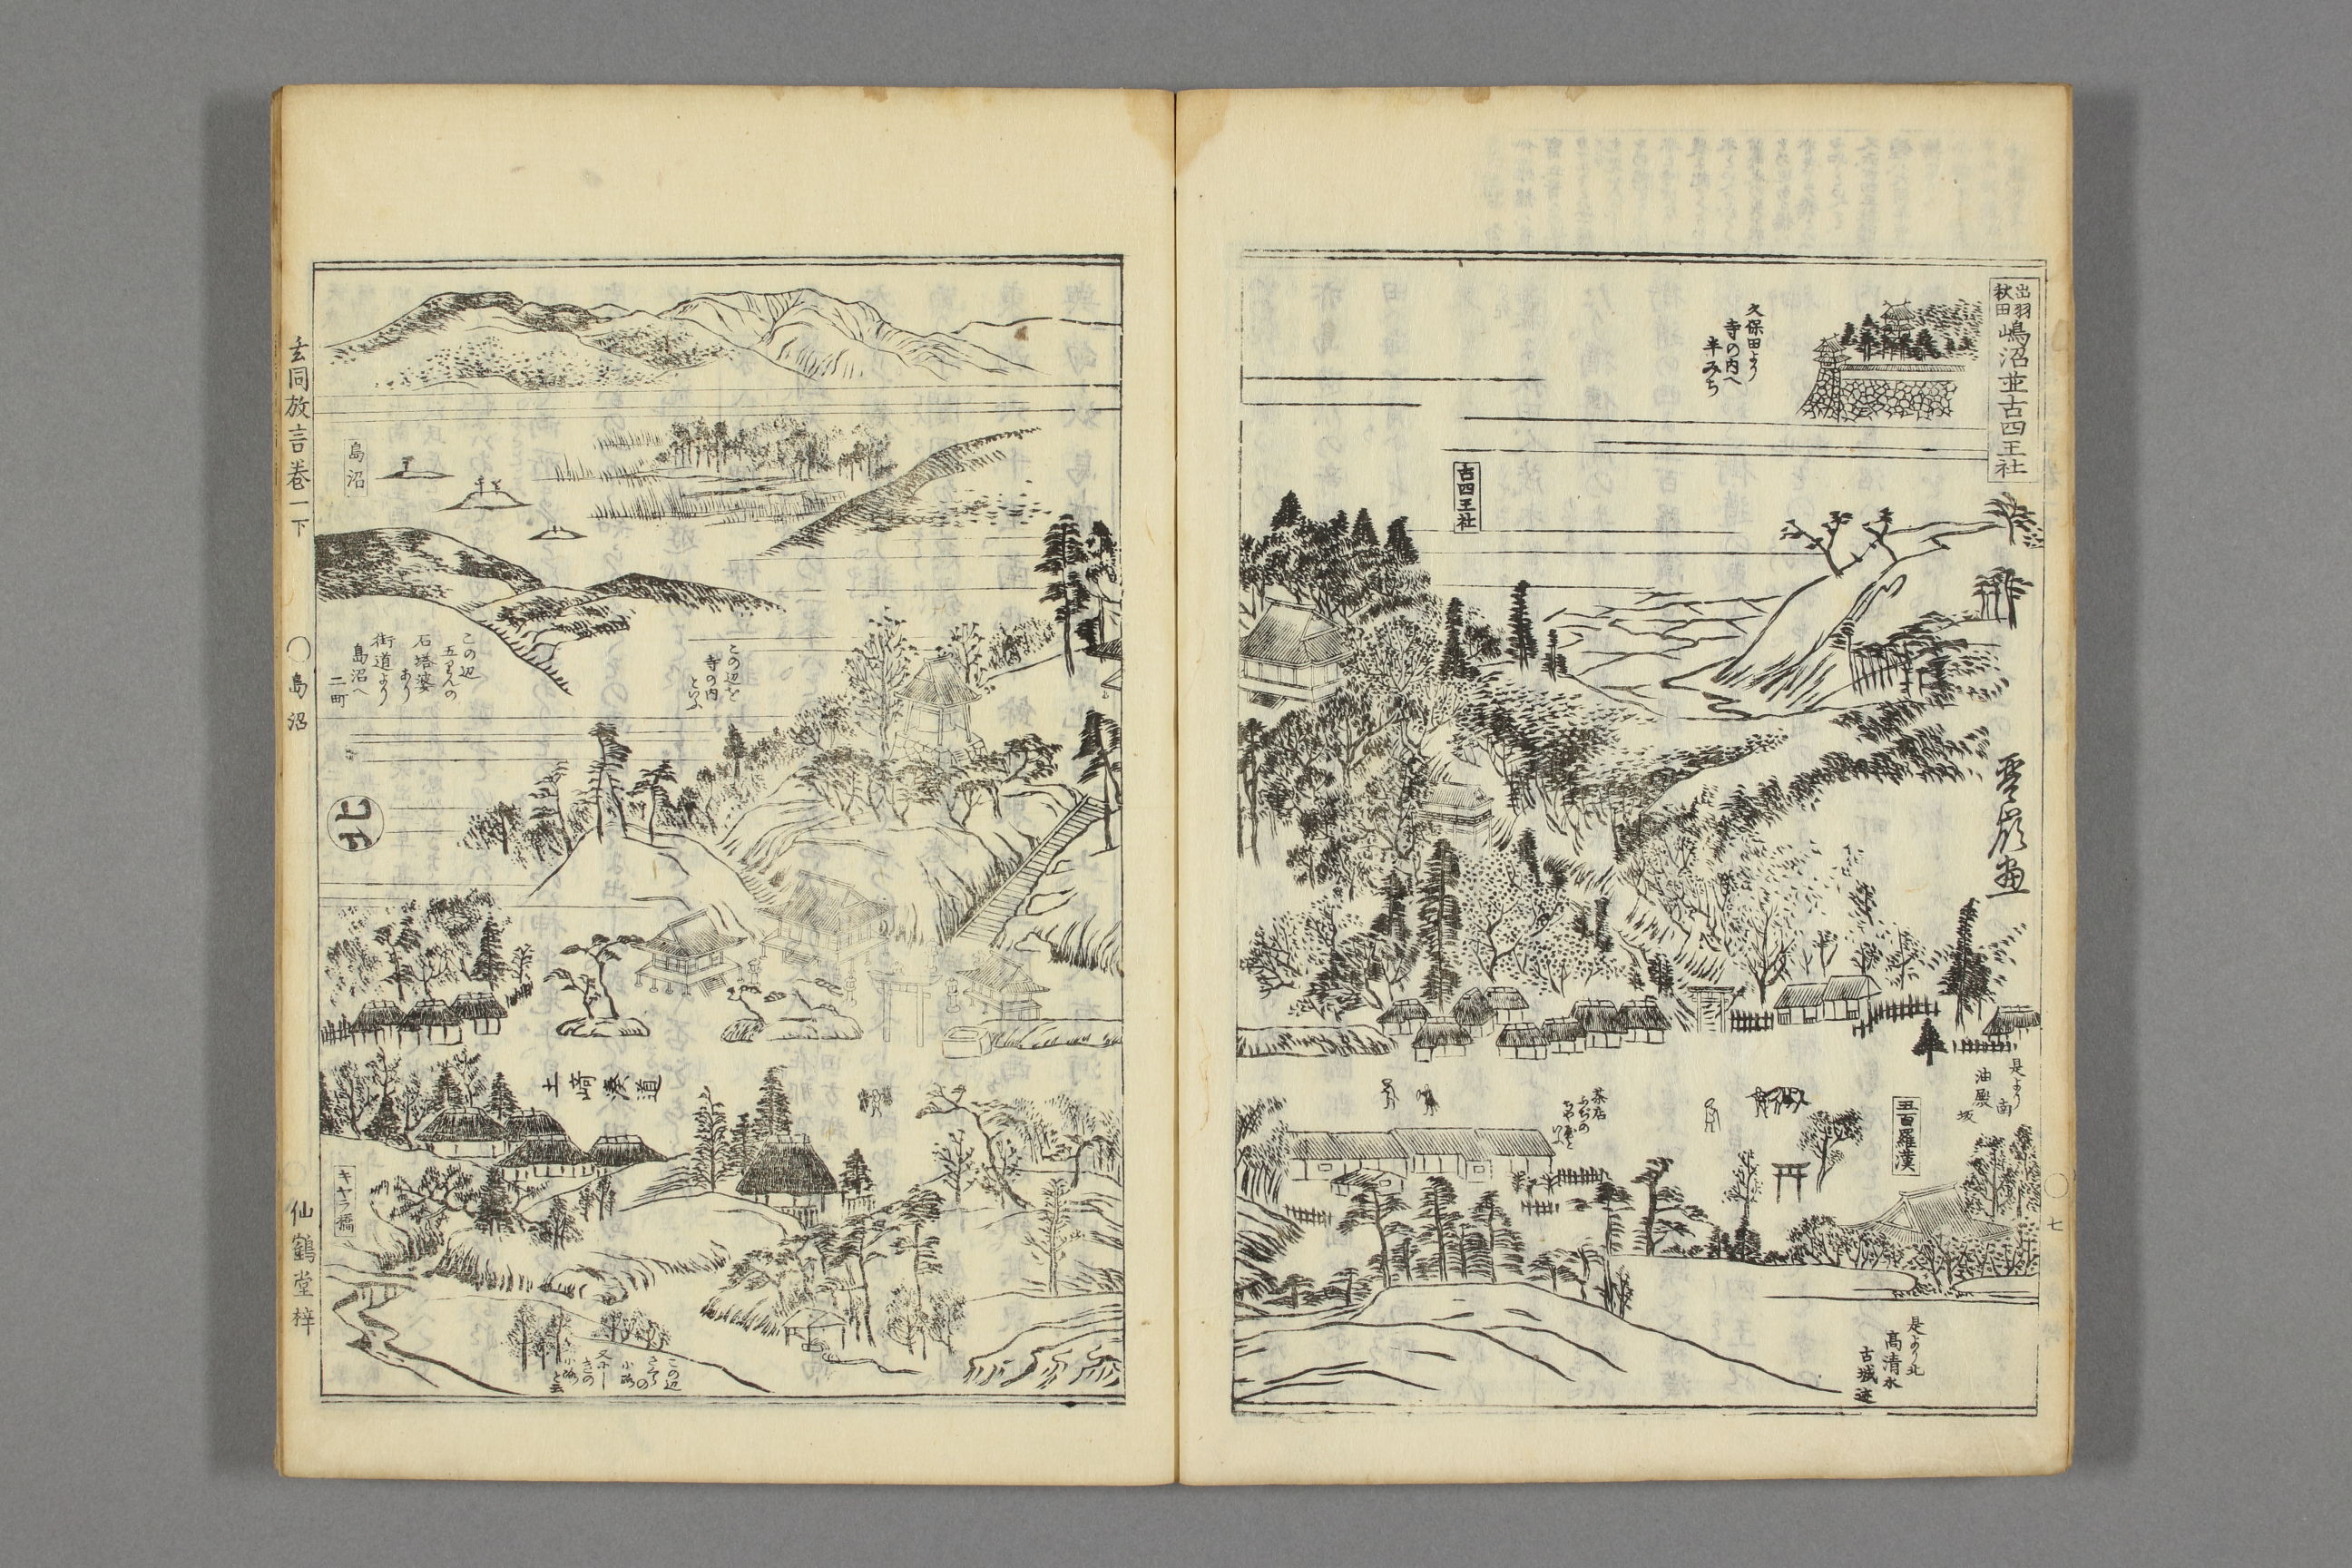 出羽
秋田
嶋沼並古四王社
久保田より
寺の内へ
半みち
古四王社
雪嶺画
是より
南
油殿
坂
五百羅漢
茶店
是より北
高清水
古城迹
七
この辺を
寺の内
といふ
島沼
この辺
五りんの
石塔婆
あり
街道より
島沼へ
二町
北
土崎湊道
キヤラ橋
この辺
小路
又
小路
と云
玄同放言巻一下
〇島沼
仙鶴堂梓